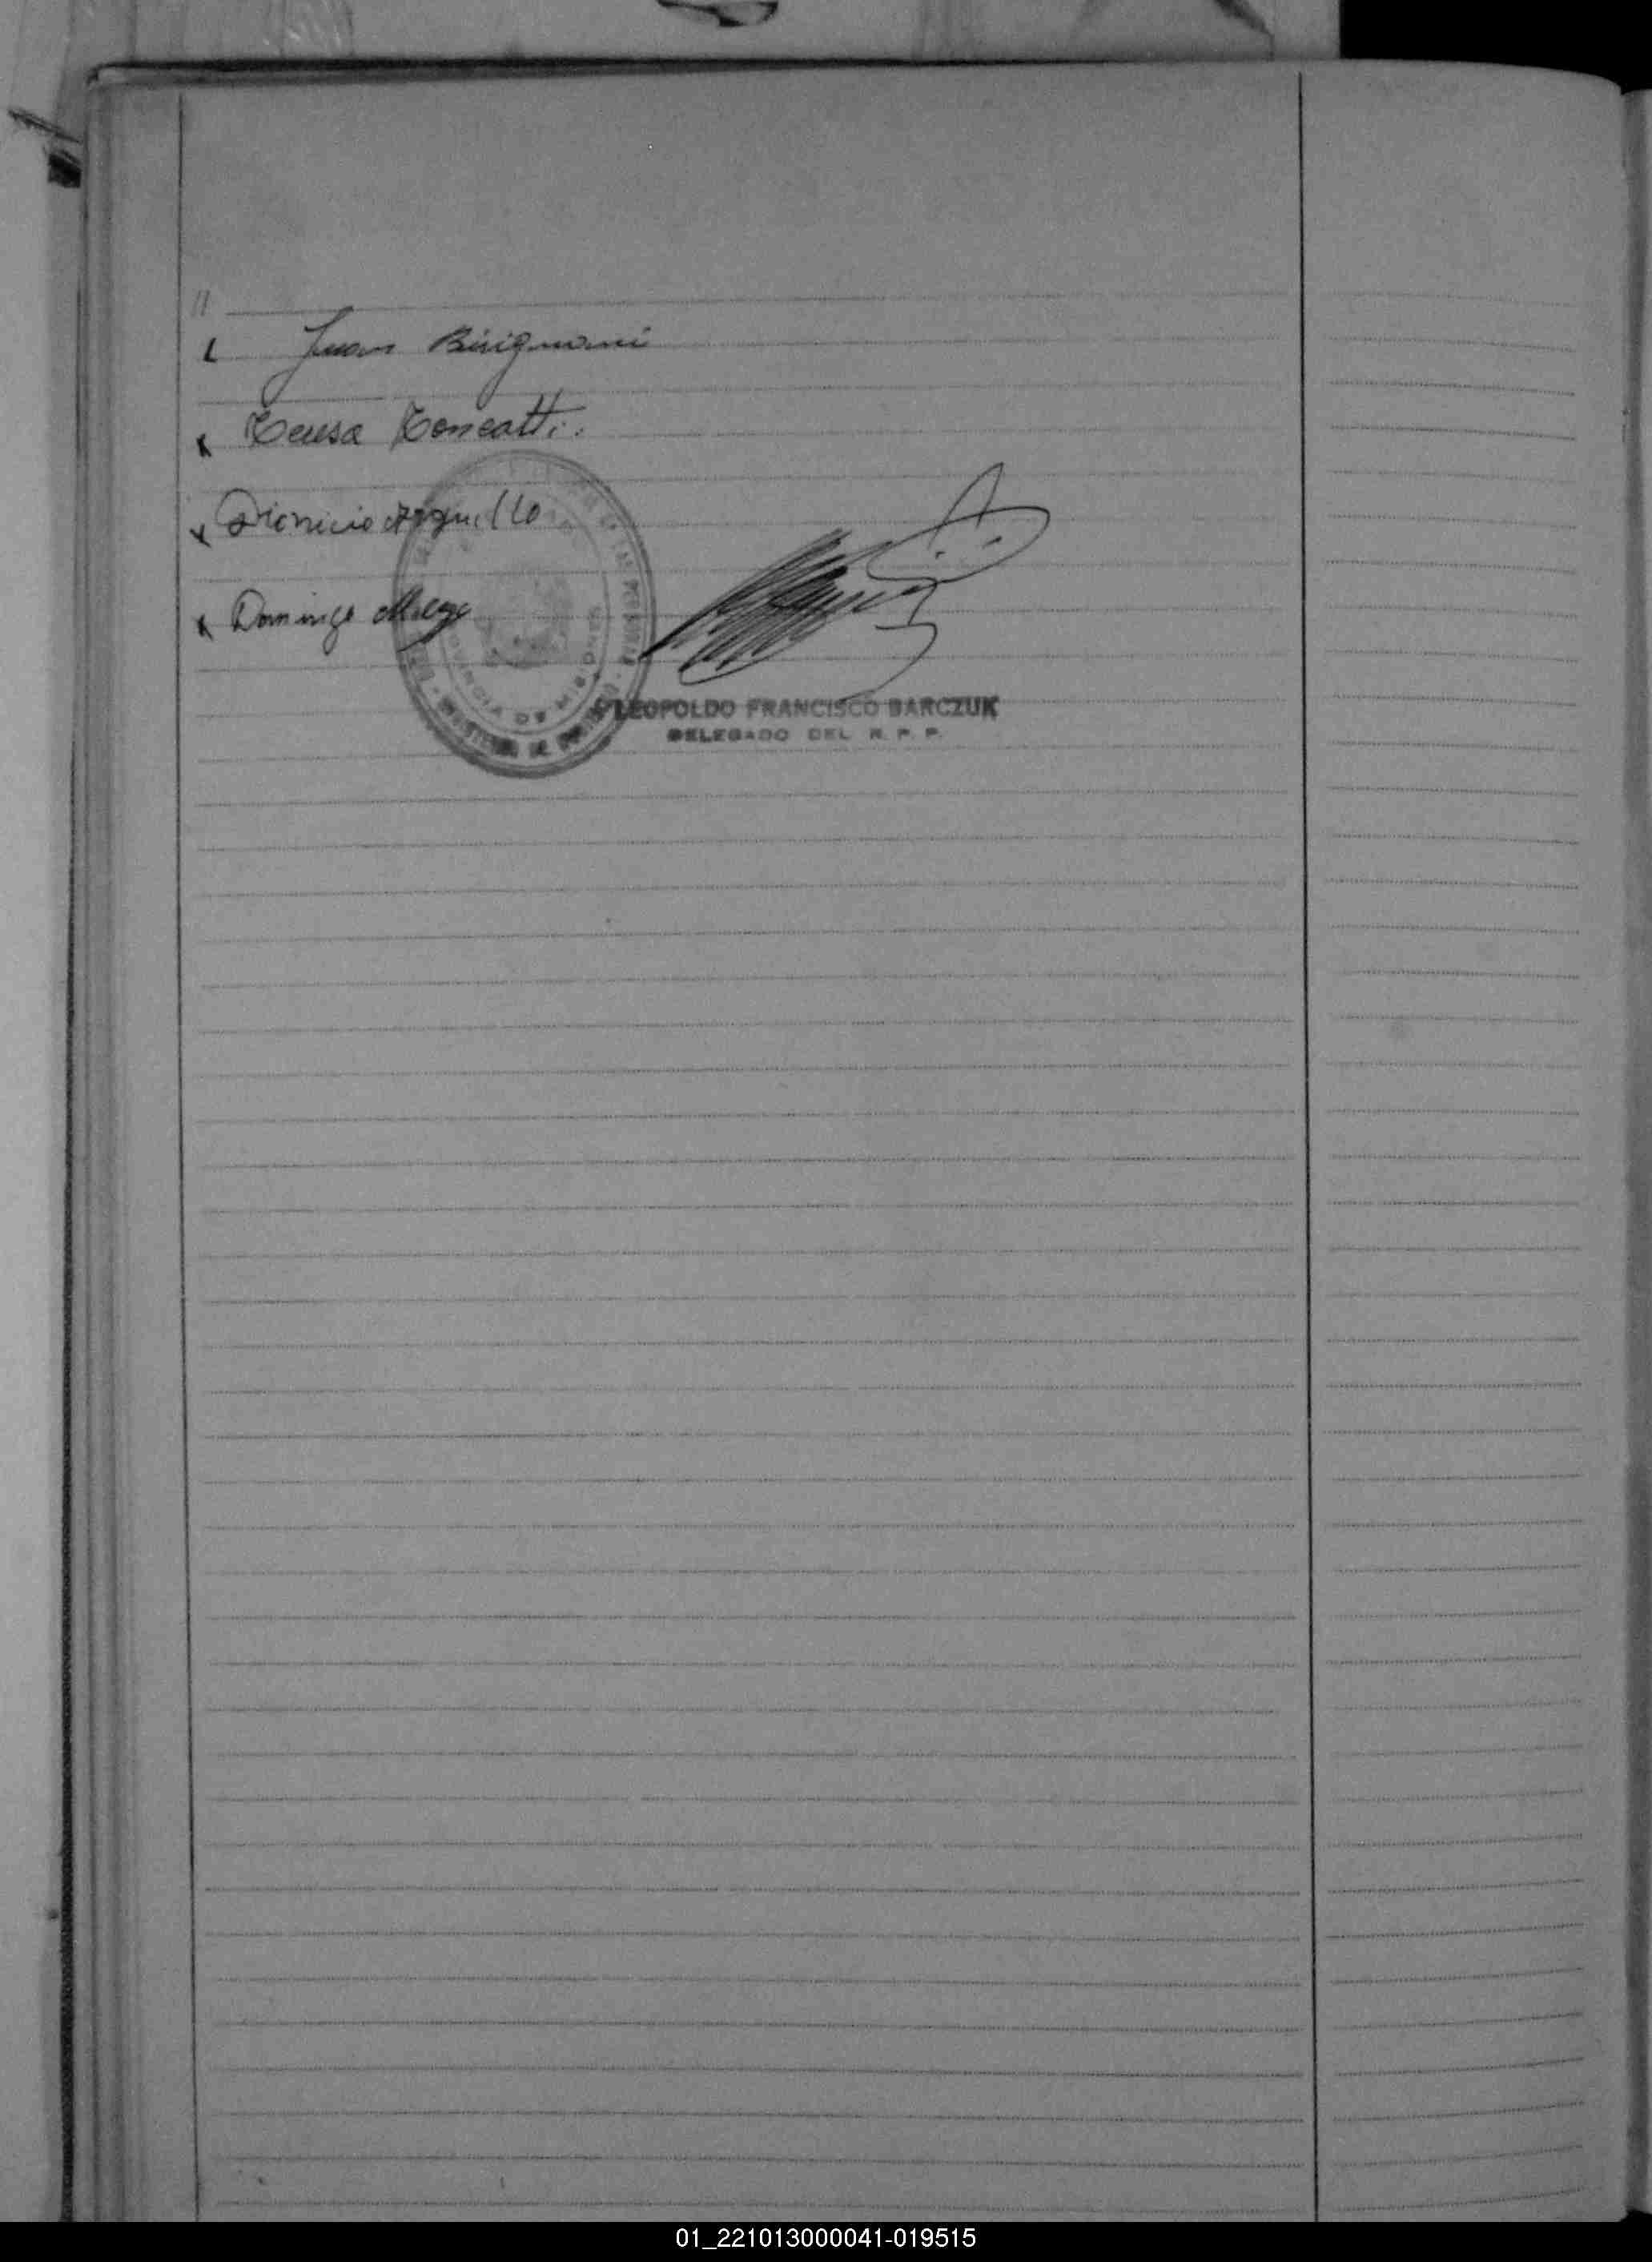 //
Juan Birignani
Teresa Toncatti.
Dionicio Arguello
Domingo
PROVINCIA DE MISIONES
LEOPOLDO FRANCISCO BARCZUK
DELEGADO DEL R. P. P.
01_221013000041-019515